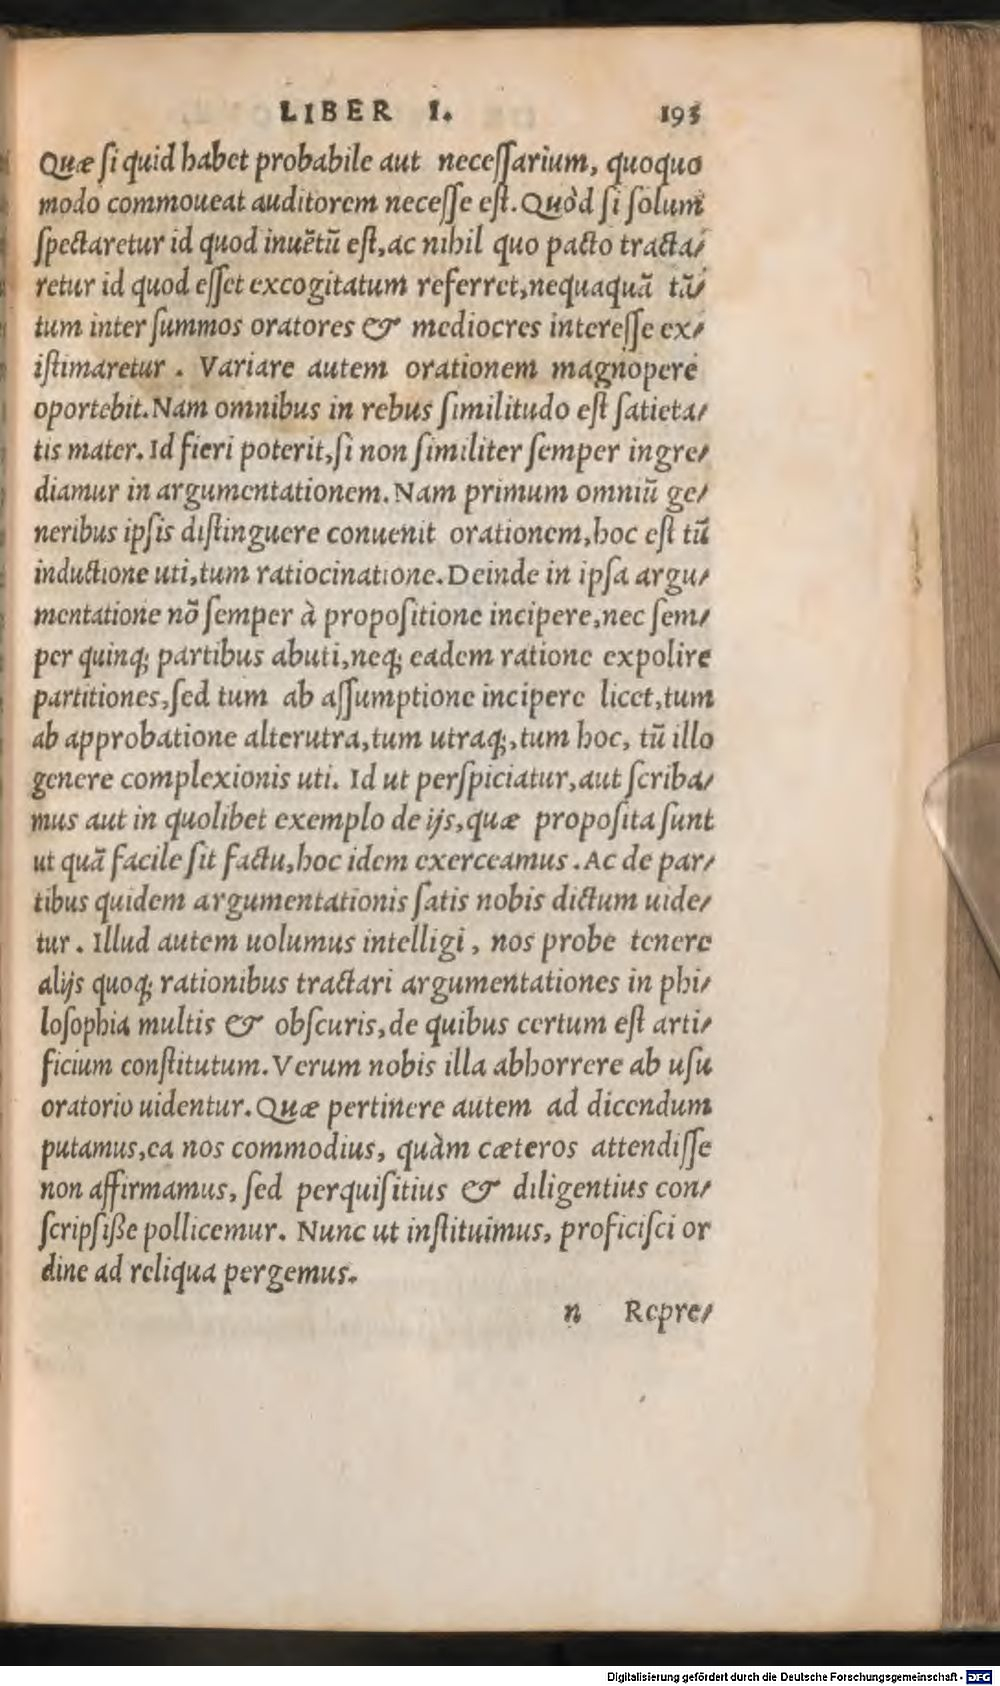 LIBER I. 193
Quæ ſi quid habet probabile aut neceſſarium, quoquo
modo commoueat auditorem neceſſe eſt. Quòd ſi ſolum
ſpectaretur id quod inuẽtũ eſt, ac nihil quo pacto tracta⸗
retur id quod eſſet excogitatum referret, nequaquã tã⸗
tum inter ſummos oratores & mediocres intereſſe ex⸗
iſtimaretur. Variare autem orationem magnopere
oportebit. Nam omnibus in rebus ſimilitudo eſt ſatieta⸗
tis mater. Id fieri poterit, ſi non ſimiliter ſemper ingre⸗
diamur in argumentationem. Nam primum omniũ ge⸗
neribus ipſis diſtinguere conuenit orationem, hoc eſt tũ
inductione uti, tum ratiocinatione. Deinde in ipſa argu⸗
mentatione nõ ſemper à propoſitione incipere, nec ſem⸗
per quinq; partibus abuti, neq; eadem ratione expolire
partitiones, ſed tum ab aſſumptione incipere licet, tum
ab approbatione alterutra, tum utraq;, tum hoc, tũ illo
genere complexionis uti. Id ut perſpiciatur, aut ſcriba⸗
mus aut in quolibet exemplo de ijs, quæ propoſita ſunt
ut quã facile ſit factu, hoc idem exerceamus. Ac de par⸗
tibus quidem argumentationis ſatis nobis dictum uide⸗
tur. Illud autem uolumus intelligi, nos probe tenere
alijs quoq; rationibus tractari argumentationes in phi⸗
loſophia multis & obſcuris, de quibus certum eſt arti⸗
ficium conſtitutum. Verum nobis illa abhorrere ab uſu
oratorio uidentur. Quæ pertinere autem ad dicendum
putamus, ea nos commodius, quàm cæteros attendiſſe
non affirmamus, ſed perquiſitius & diligentius con⸗
ſcripſiße pollicemur. Nunc ut inſtituimus, proficiſci or
dine ad reliqua pergemus.
n Repre⸗
Digitalisierung gefördert durch die Deutsche Forschungsgemeinschaft - DFG